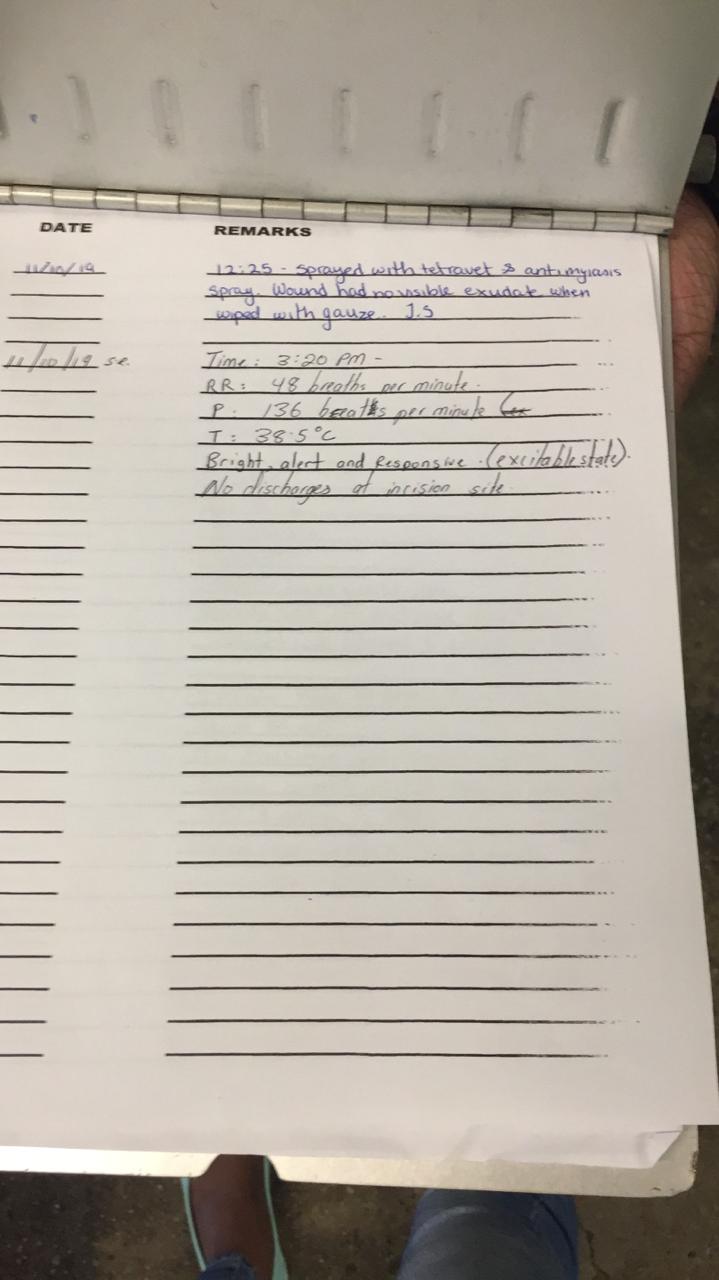 DATE REMARKS
11/10/19 12:25 - sprayed with tetravet & antimyiasis
spray. Wound had no visible exudate when
wiped with gauze. J.S
11/10/19 se. Time: 3:20 PM -
RR: 48 breaths per minute.
P: 136 beats per minute
T: 38.5°C
Bright, alert and Responsive. (excitable state).
No discharges at incision site.